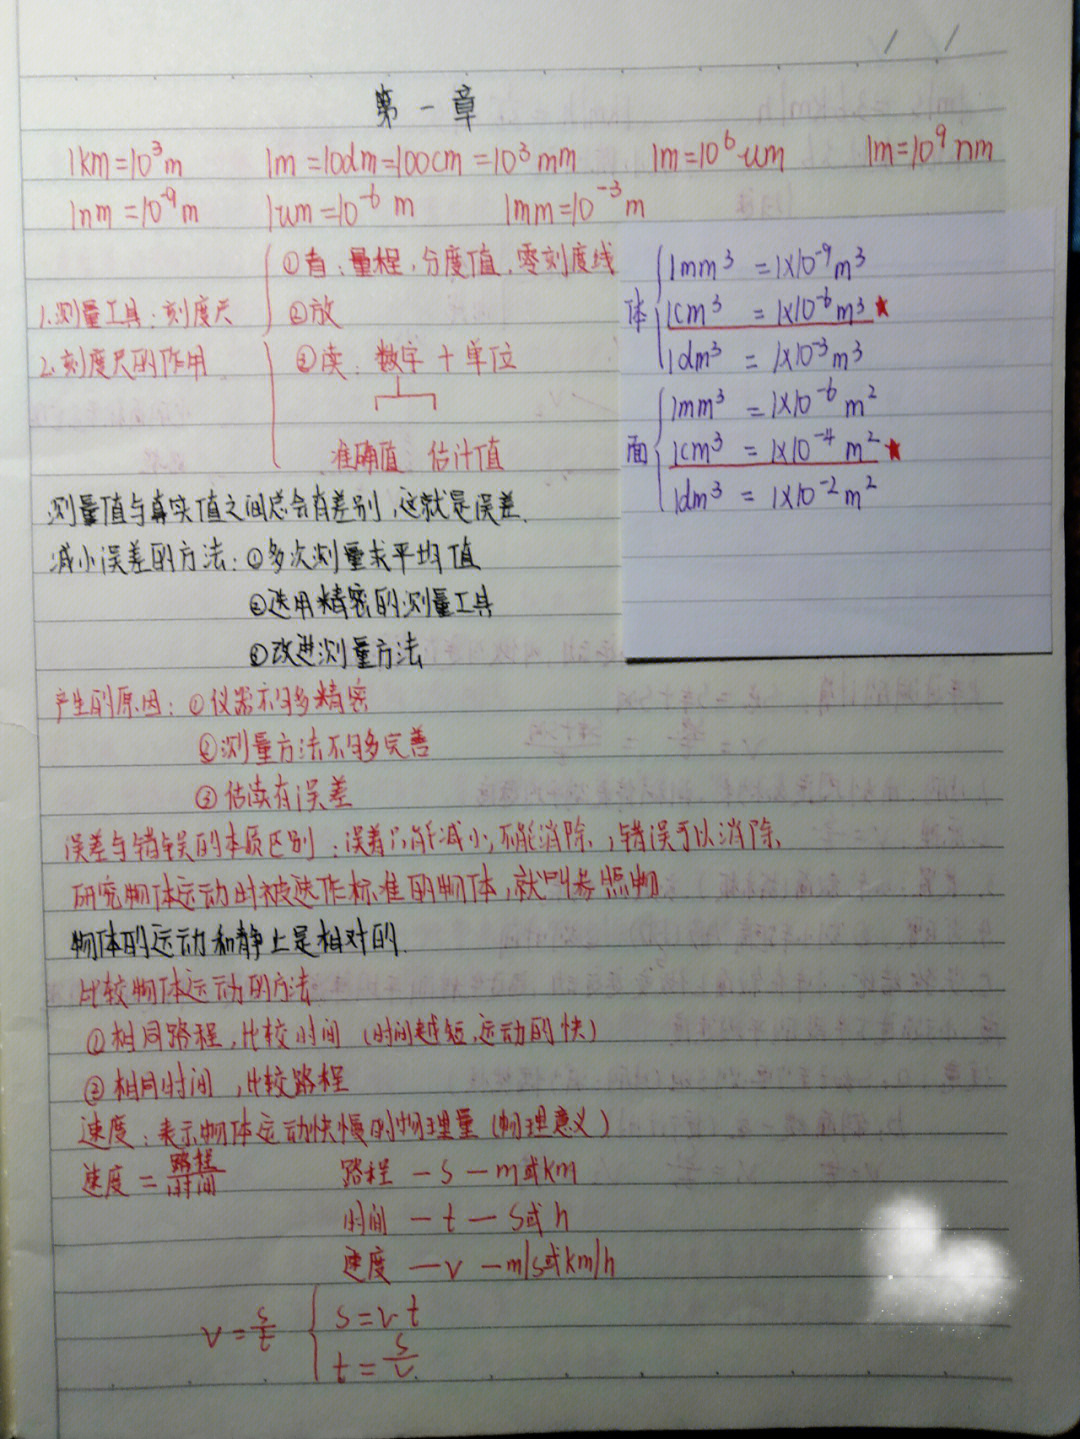 第一章
1km=10³m 1m=10dm=100cm=10³mm 1m=10⁶um 1m=10⁹nm
1nm=10⁻⁹m 1um=10⁻⁶m 1mm=10⁻³m
①看:量程,分度值,零刻度线
1.测量工具:刻度尺 ②放
2.刻度尺的作用 ③读:数字+单位
准确值 估计值
体
1mm³=1×10⁻⁹m³
1cm³=1×10⁻⁶m³★
1dm³=1×10⁻³m³
面
1mm³=1×10⁻⁶m²
1cm³=1×10⁻⁴m²★
1dm³=1×10⁻²m²
测量值与真实值之间总会有差别,这就是误差.
减小误差的方法:①多次测量求平均值
②选用精密的测量工具
③改进测量方法
产生的原因:①仪器不够多精密
②测量方法不够多完善
③估读有误差
误差与错误的本质区别:误差只能减小,不能消除,错误可以消除.
研究物体运动时被选作标准的物体,就叫参照物
物体的运动和静止是相对的.
比较物体运动的方法
①相同路程,比较时间(时间越短,运动的快)
②相同时间,比较路程
速度:表示物体运动快慢的物理量(物理意义)
速度=路程/时间 路程—s—m或km
时间—t—s或h
速度—v—m/s或km/h
v=s/t s=vt
t=s/v